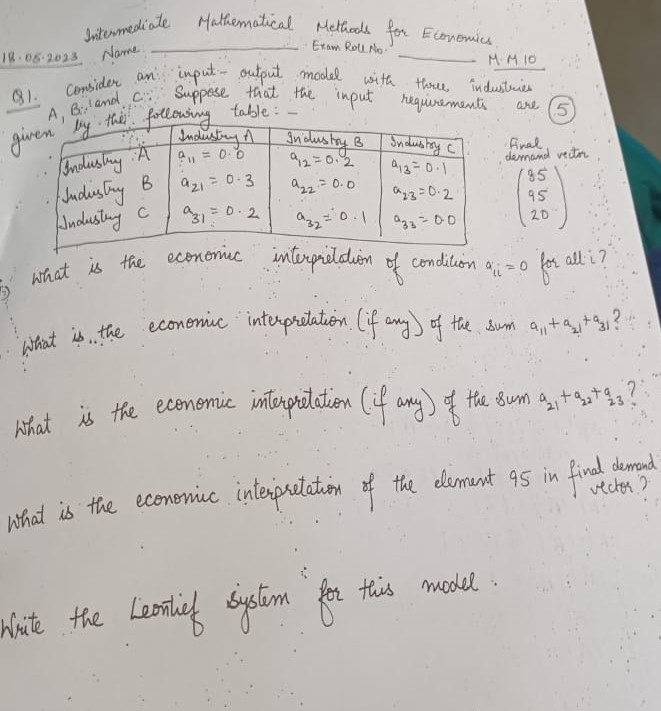 Intermediate Mathematical Methods for Economics
18.05.2023 Name. Exam Roll No.
M.M 10
Q1. Consider an input-output model with three industries
A, B, and C. Suppose that the input requirements are (5)
given by the following table:-
Industry A Industry B Industry C Final demand vector
Industry A a11 = 0.0 a12 = 0.2 a13 = 0.1 85
Industry B a21 = 0.3 a22 = 0.0 a23 = 0.2 95
Industry C a31 = 0.2 a32 = 0.1 a33 = 0.0 20
What is the economic interpretation of condition aii = 0 for all i?
What is the economic interpretation (if any) of the sum a11 + a21 + a31?
What is the economic interpretation (if any) of the sum a21 + a22 + a23?
What is the economic interpretation of the element 95 in final demand vector?
Write the Leontief system for this model.